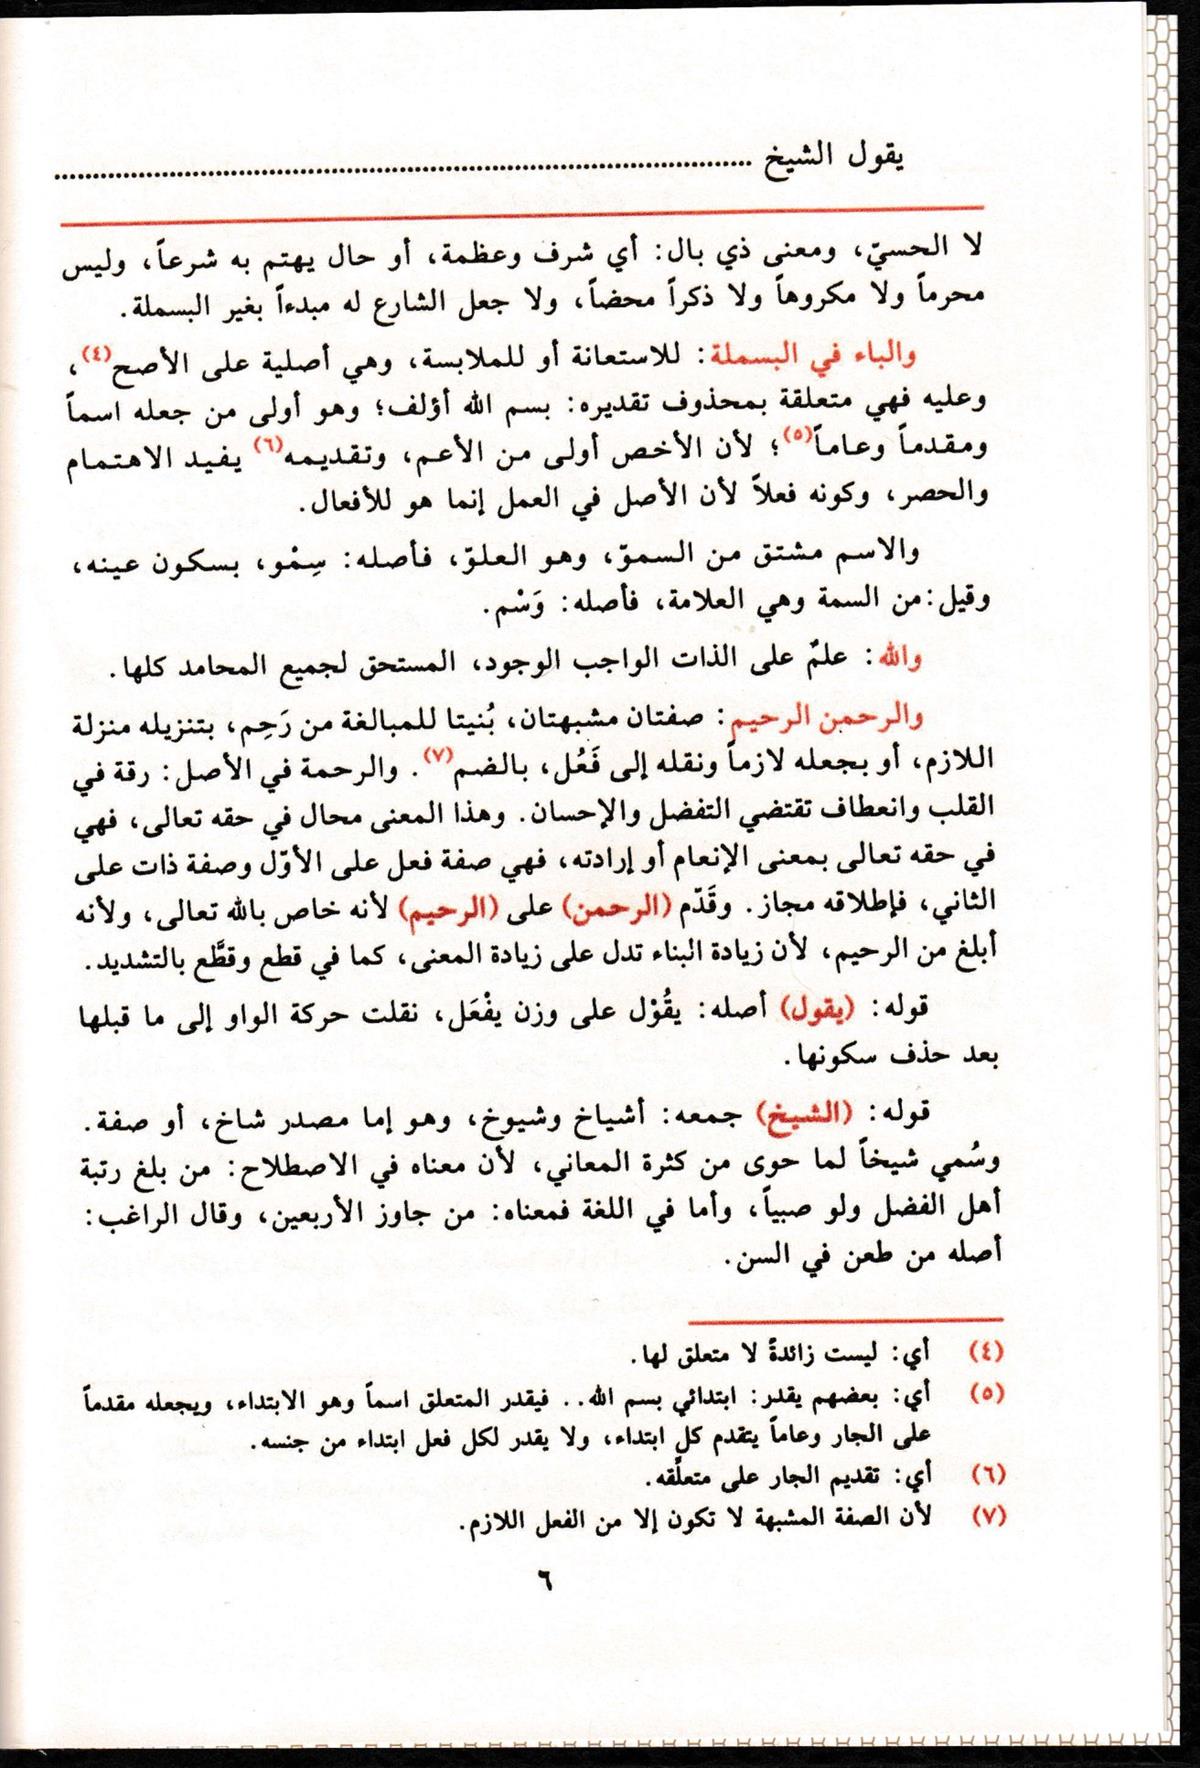 يقول الشيخ ................................................................
لا الحسيّ، ومعنى ذي بال: أي شرف وعظمة، أو حال يهتم به شرعاً، وليس
محرماً ولا مكروهاً ولا ذكراً محضاً، ولا جعل الشارع له مبدءاً بغير البسملة.
والباء في البسملة: للاستعانة أو للملابسة، وهي أصلية على الأصح(٤)،
وعليه فهي متعلقة بمحذوف تقديره: بسم الله أؤلف؛ وهو أولى من جعله اسماً
ومقدماً وعاماً(٥)؛ لأن الأخص أولى من الأعم، وتقديمه(٦) يفيد الاهتمام
والحصر، وكونه فعلاً لأن الأصل في العمل إنما هو للأفعال.
والاسم مشتق من السموّ، وهو العلوّ، فأصله: سِمْو، بسكون عينه،
وقيل:من السمة وهي العلامة، فأصله: وَسْم.
والله: علمٌ على الذات الواجب الوجود، المستحق لجميع المحامد كلها.
والرحمن الرحيم: صفتان مشبهتان، بُنيتا للمبالغة من رَحِم، بتنزيله منزلة
اللازم، أو بجعله لازماً ونقله إلى فَعُل، بالضم(٧). والرحمة في الأصل: رقة في
القلب وانعطاف تقتضي التفضل والإحسان. وهذا المعنى محال في حقه تعالى، فهي
في حقه تعالى بمعنى الإنعام أو إرادته، فهي صفة فعل على الأوّل وصفة ذات على
الثاني، فإطلاقه مجاز. وقَدّم (الرحمن) على (الرحيم) لأنه خاص بالله تعالى، ولأنه
أبلغ من الرحيم، لأن زيادة البناء تدل على زيادة المعنى، كما في قطع وقطَّع بالتشديد.
قوله: (يقول) أصله: يقُوْل على وزن يفْعَل، نقلت حركة الواو إلى ما قبلها
بعد حذف سكونها.
قوله: (الشيخ) جمعه: أشياخ وشيوخ، وهو إما مصدر شاخ، أو صفة.
وسُمي شيخاً لما حوى من كثرة المعاني، لأن معناه في الاصطلاح: من بلغ رتبة
أهل الفضل ولو صبياً، وأما في اللغة فمعناه: من جاوز الأربعين، وقال الراغب:
أصله من طعن في السن.
(٤) أي: ليست زائدةً لا متعلق لها.
(٥) أي: بعضهم يقدر: ابتدائي بسم الله.. فيقدر المتعلق اسماً وهو الابتداء، ويجعله مقدماً
على الجار وعاماً يتقدم كل ابتداء، ولا يقدر لكل فعل ابتداء من جنسه.
(٦) أي: تقديم الجار على متعلَّقه.
(٧) لأن الصفة المشبهة لا تكون إلا من الفعل اللازم.
٦